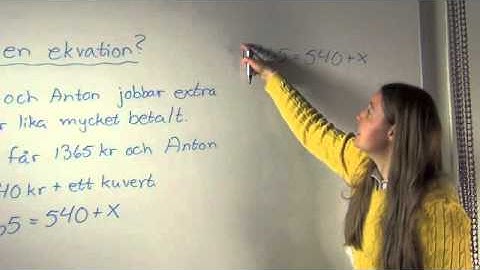 en ekvation?
och Anton jobbar extra
r lika mycket betalt.
får 1365 kr och Anton
40 kr + ett kuvert.
65 = 540 + x
5 = 540 + x